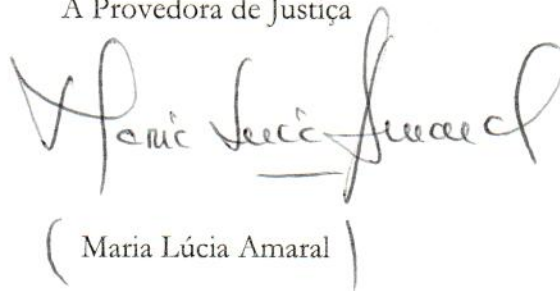 A Provedora de Justiça
Maria Lúcia Amaral
(Maria Lúcia Amaral)